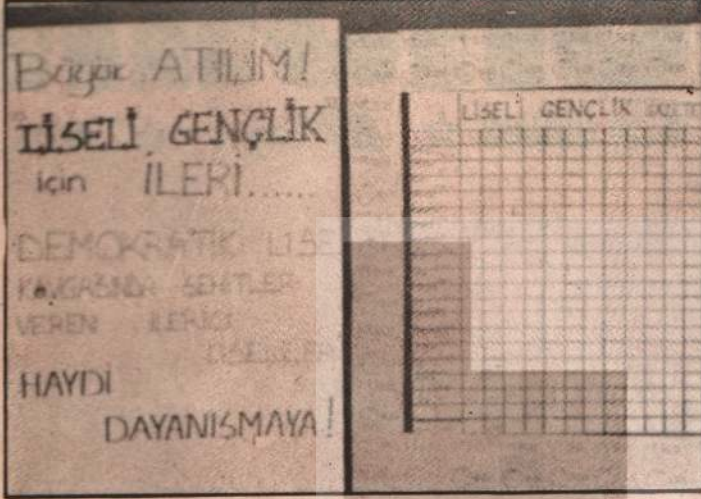 Büyük ATILIM!
"LİSELİ GENÇLİK"
için İLERİ......
DEMOKRATİK LİSE
KAVGASINDA ŞEHİTLER
VEREN İLERİCİ
LİSELİLER
HAYDİ
DAYANIŞMAYA!
LİSELİ GENÇLİK